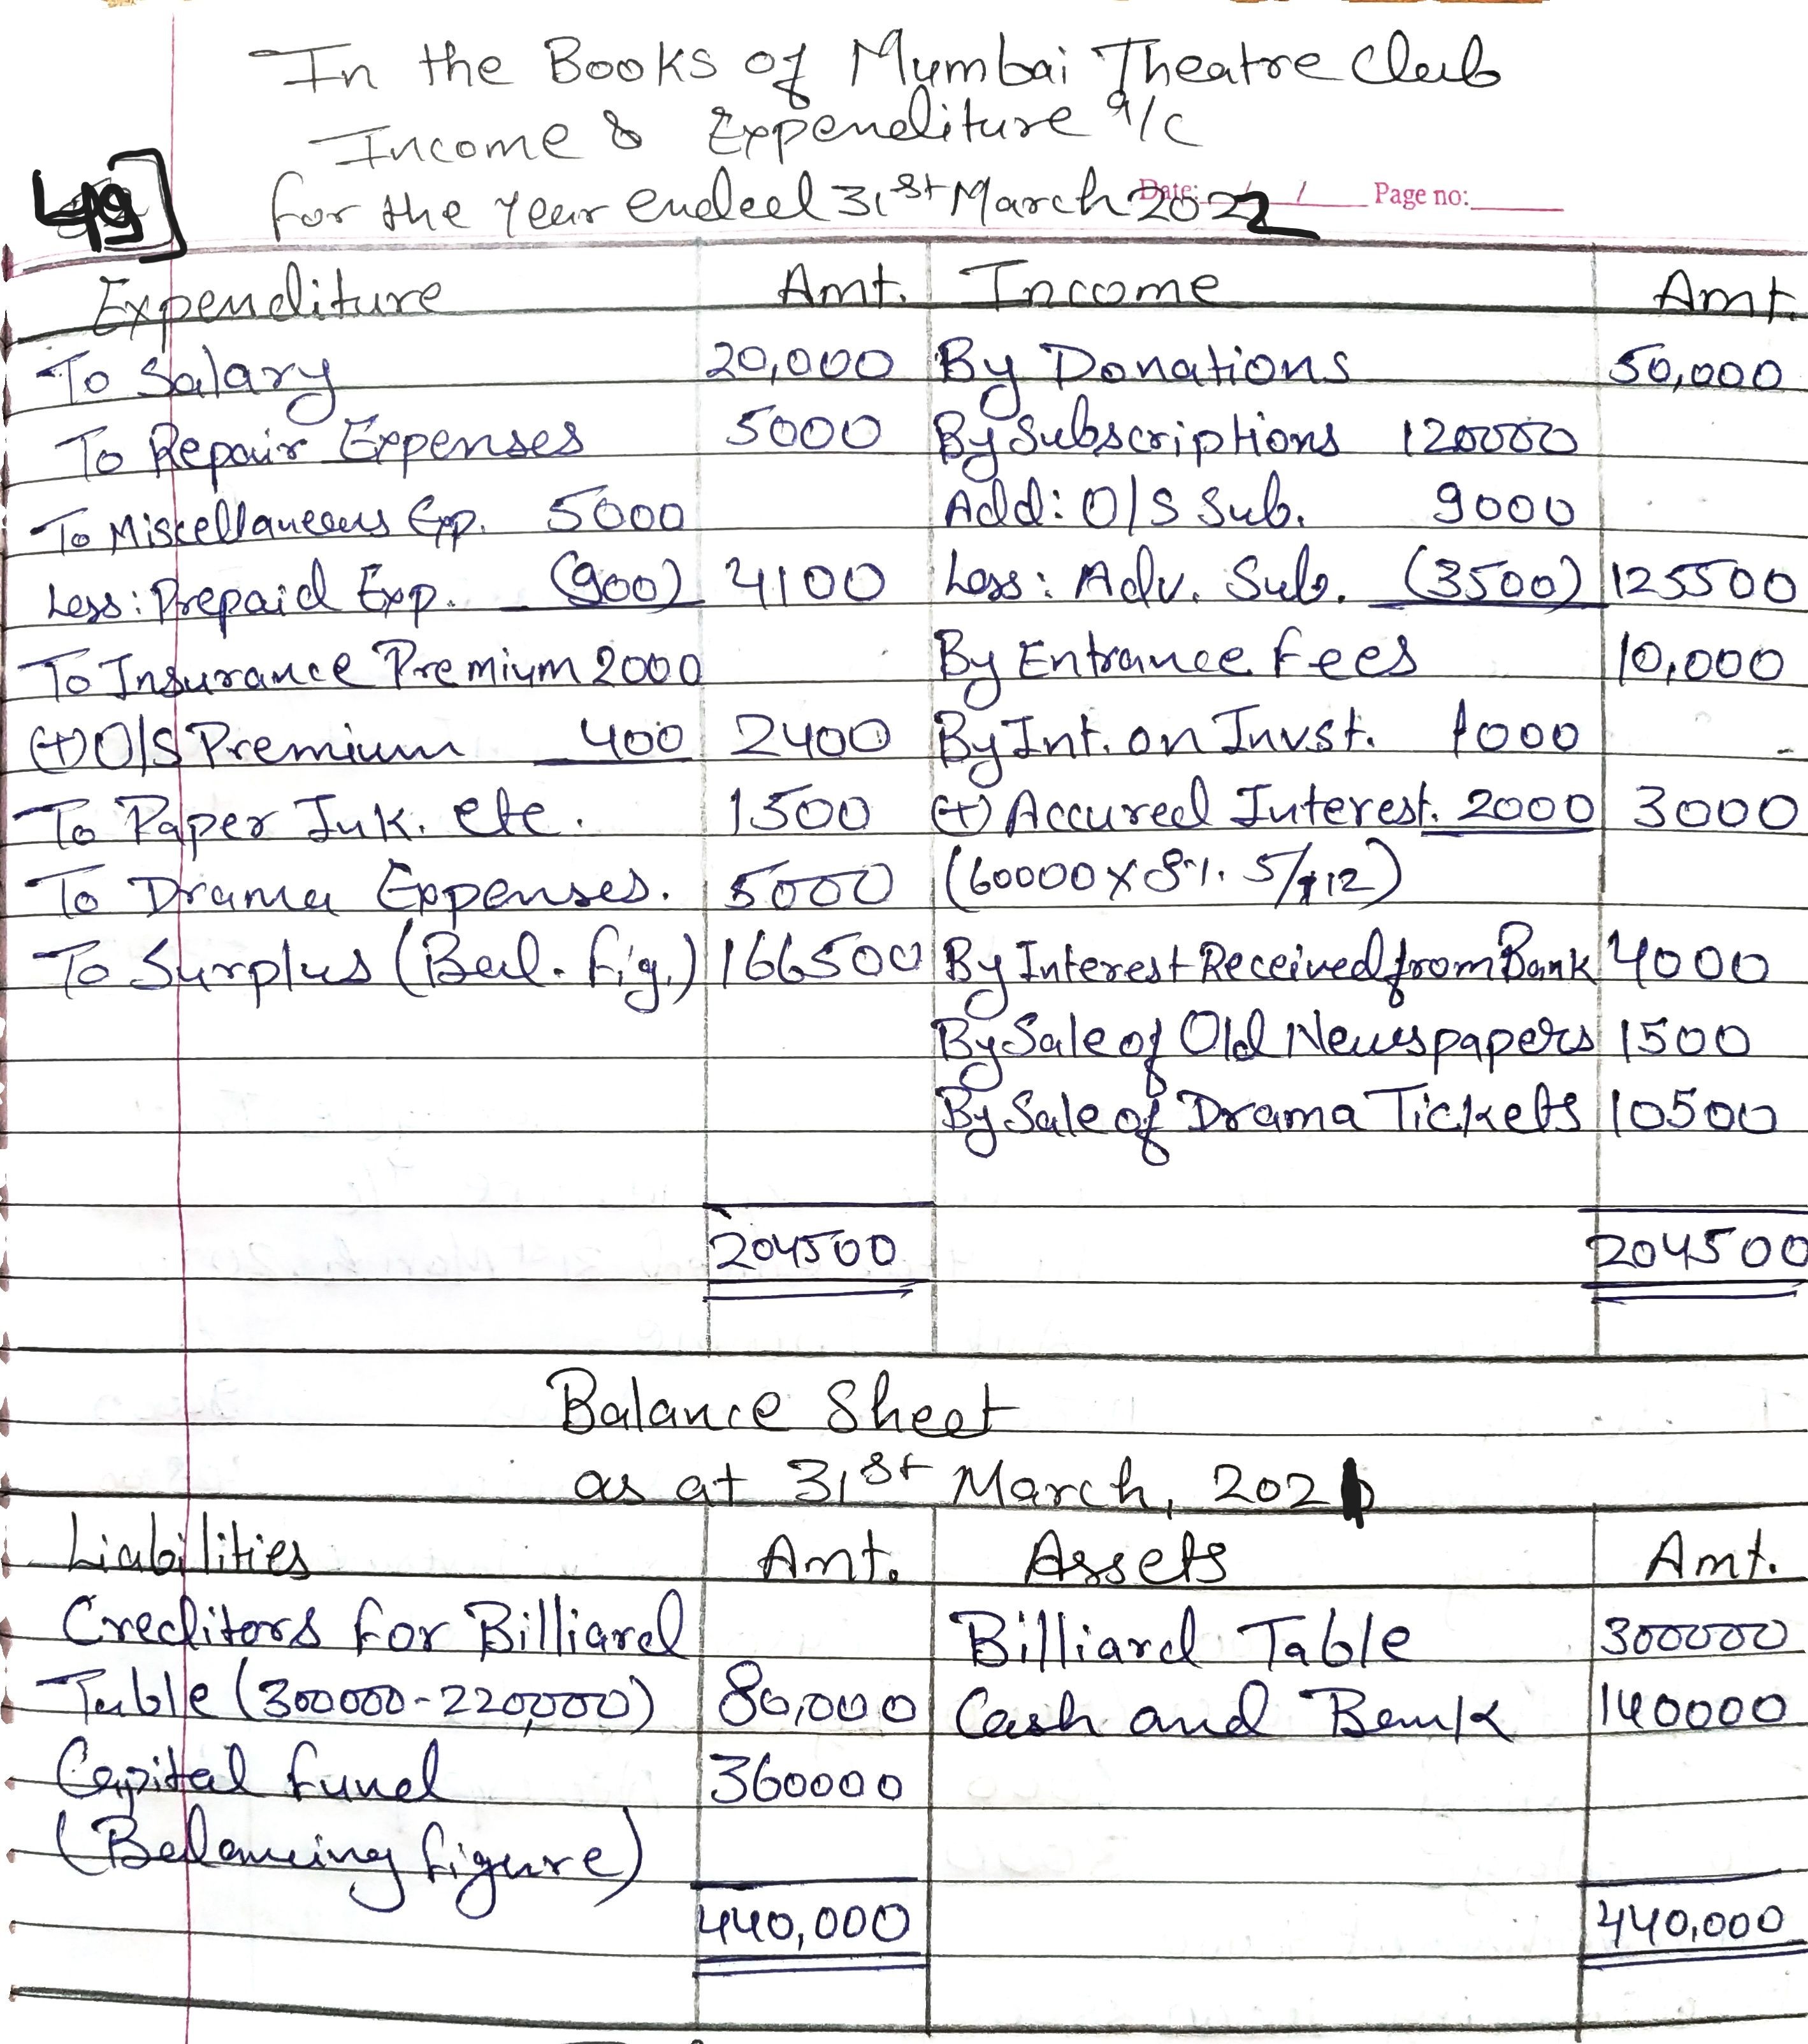 In the Books of Mumbai Theatre Club
Income & Expenditure a/c
49]
for the Year ended 31st March 2022
Date: / / Page no:
Expenditure Amt. Income Amt.
To Salary 20,000 By Donations 50,000
To Repair Expenses 5000 By Subscriptions 120000
To Miscellaneous Exp. 5000 Add: O/S Sub. 9000
Less: Prepaid Exp. (900) 4100 Less: Adv. Sub. (3500) 125500
To Insurance Premium 2000 By Entrance Fees 10,000
(+) O/S Premium 400 2400 By Int. on Invst. 1000
To Paper Ink. etc. 1500 (+) Accured Interest. 2000 3000
To Drama Expenses. 5000 (60000 X 8%. 5/12)
To Surplus (Bal. fig.) 166500 By Interest Received from Bank 4000
By Sale of Old Newspapers 1500
By Sale of Drama Tickets 10500
204500 204500
Balance Sheet
as at 31st March, 2021
Liabilities Amt. Assets Amt.
Creditors for Billiard Billiard Table 300000
Table (300000-220,000) 80,000 Cash and Bank 140000
Capital fund 360000
(Balancing figure)
440,000 440,000